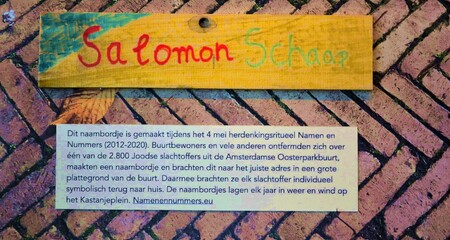 Salomon Schaap
Dit naambordje is gemaakt tijdens het 4 mei herdenkingsritueel Namen en
Nummers (2012-2020). Buurtbewoners en vele anderen ontfermden zich over
één van de 2.800 Joodse slachtoffers uit de Amsterdamse Oosterparkbuurt,
maakten een naambordje en brachten dit naar het juiste adres in een grote
plattegrond van de buurt. Daarmee brachten ze elk slachtoffer individueel
symbolisch terug naar huis. De naambordjes lagen elk jaar in weer en wind op
het Kastanjeplein. Namenennummers.eu